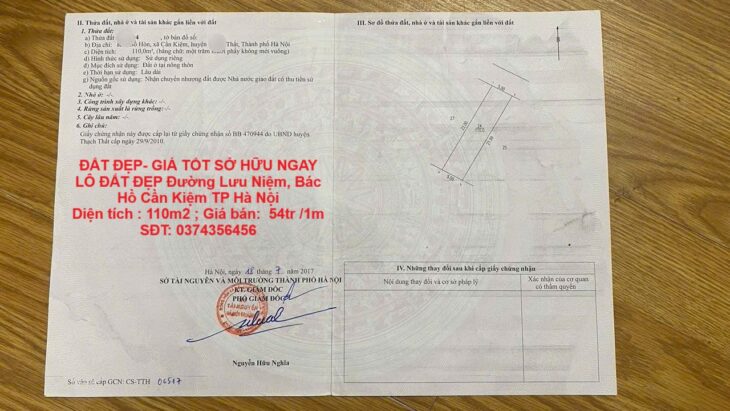 II. Thửa đất, nhà ở và tài sản khác gắn liền với đất
1. Thửa đất:
a) Thửa đất 4 , tờ bản đồ số:
b) Địa chỉ: Hòn, xã Cần Kiệm, huyện Thất, Thành phố Hà Nội
c) Diện tích: 110,0m², (bằng chữ: một trăm mười phẩy không mét vuông)
d) Hình thức sử dụng: Sử dụng riêng
đ) Mục đích sử dụng: Đất ở tại nông thôn
e) Thời hạn sử dụng: Lâu dài
g) Nguồn gốc sử dụng: Nhận chuyển nhượng đất được Nhà nước giao đất có thu tiền sử
dụng đất
2. Nhà ở: -/-
3. Công trình xây dựng khác: -/-
4. Rừng sản xuất là rừng trồng: -/-
5. Cây lâu năm: -/-
6. Ghi chú:
Giấy chứng nhận này được cấp lại từ giấy chứng nhận số BB 470944 do UBND huyện
Thạch Thất cấp ngày 29/9/2010.
ĐẤT ĐẸP- GIÁ TÓT SỞ HỮU NGAY
LÔ ĐẤT ĐẸP Đường Lưu Niệm, Bác
Hồ Cần Kiệm TP Hà Nội
Diện tích : 110m2 ; Giá bán: 54tr /1m
SĐT: 0374356456
Hà Nội, ngày 18 tháng 7 năm 2017
SỞ TÀI NGUYÊN VÀ MÔI TRƯỜNG THÀNH PHỐ HÀ NỘI
KT. GIÁM ĐỐC
PHÓ GIÁM ĐỐC
Nguyễn Hữu Nghĩa
Số vào sổ cấp GCN: CS-TTH 06517
III. Sơ đồ thửa đất, nhà ở và tài sản khác gắn liền với đất
5.00
27
22.00
22.00
25
5.00
IV. Những thay đổi sau khi cấp giấy chứng nhận
Nội dung thay đổi và cơ sở pháp lý
Xác nhận của cơ quan
có thẩm quyền